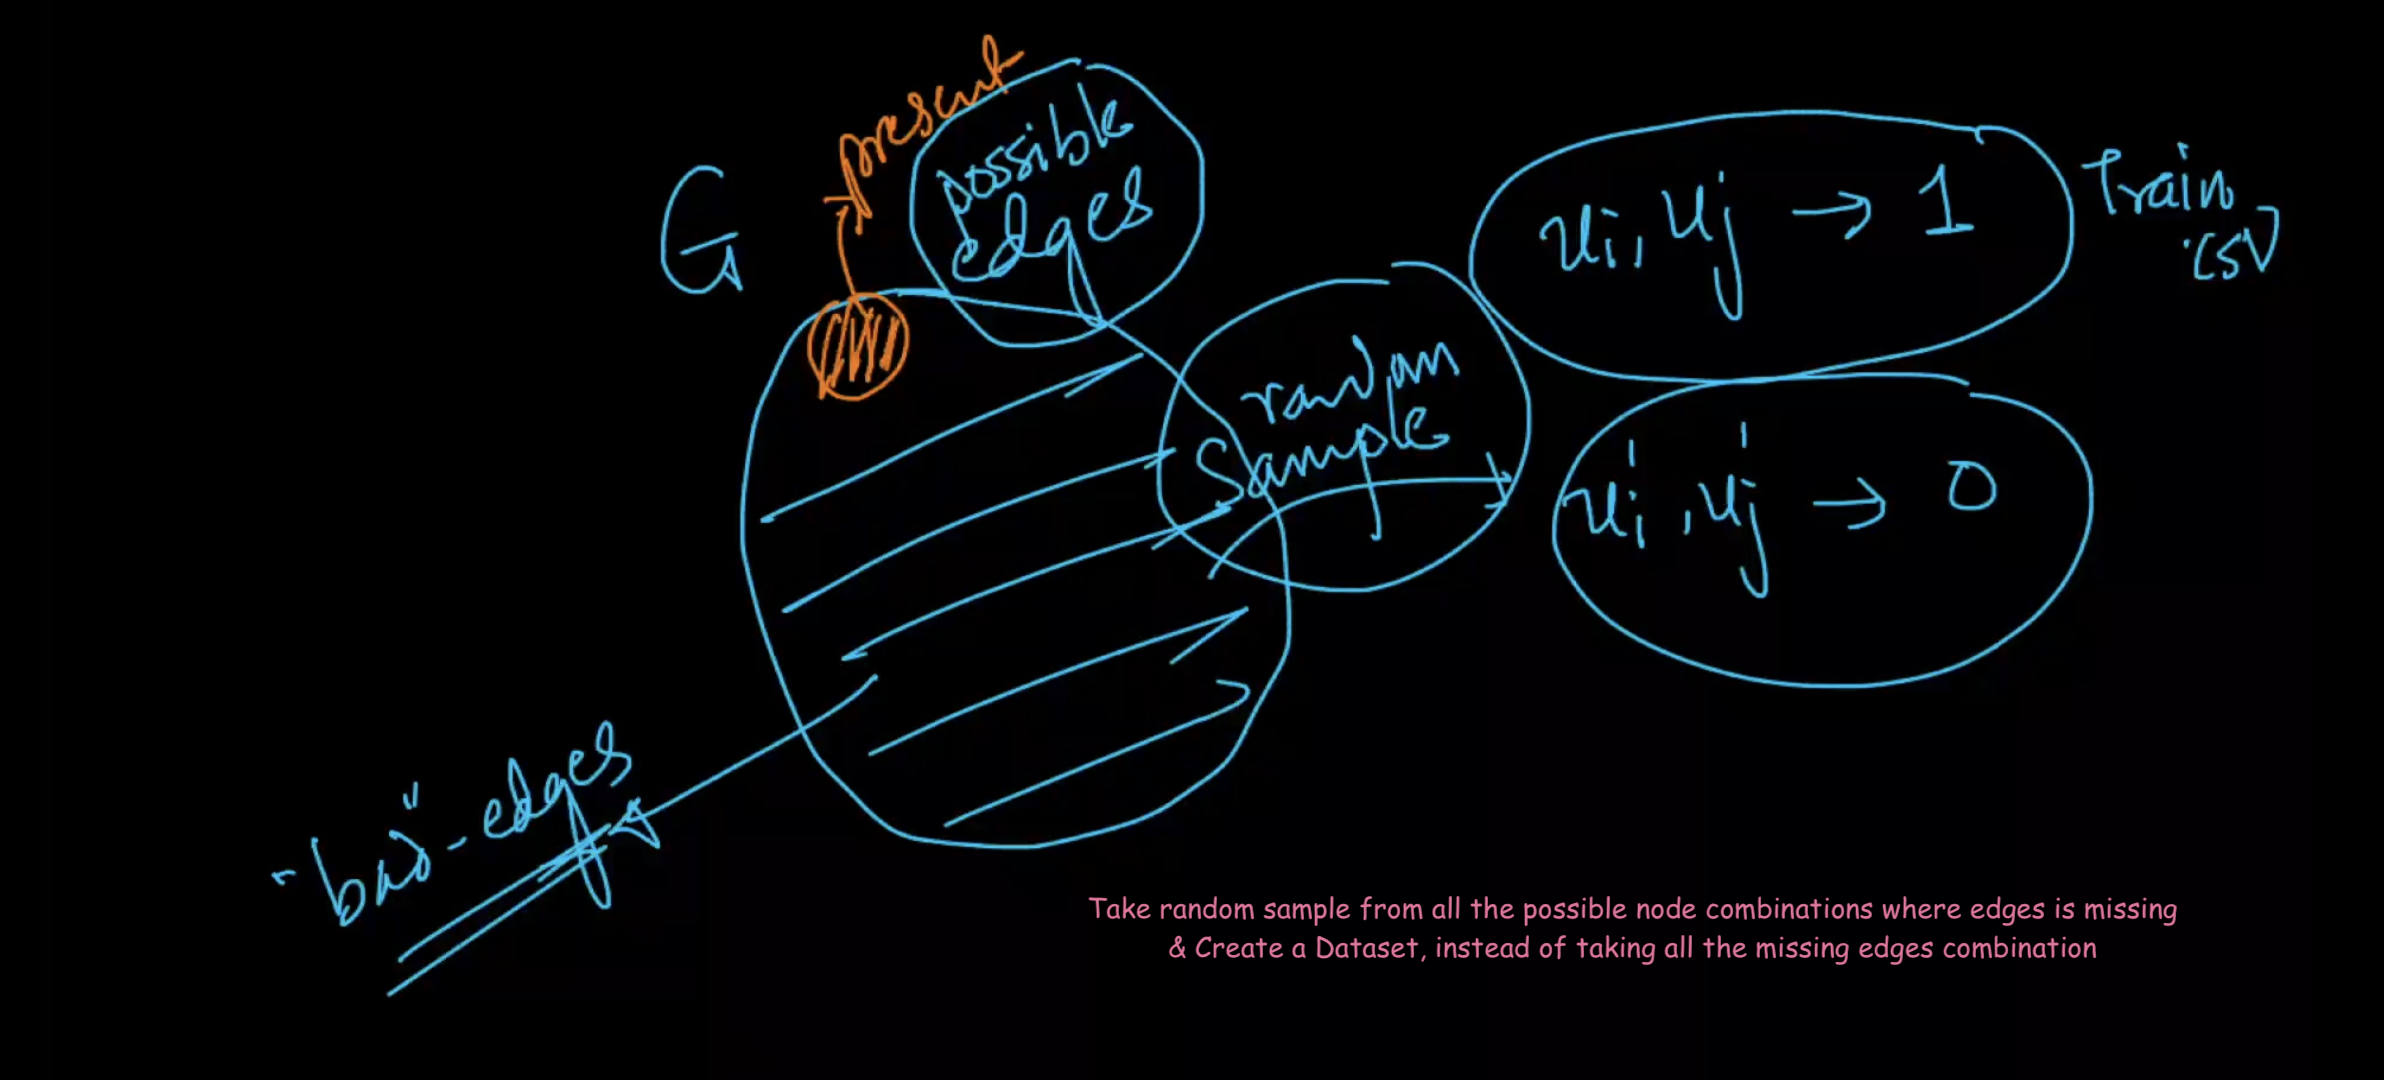 G
present
possible
edges
random
sample
ui, uj → 1
Train
.csv
ui, uj → 0
"bad"-edges
Take random sample from all the possible node combinations where edges is missing
& Create a Dataset, instead of taking all the missing edges combination